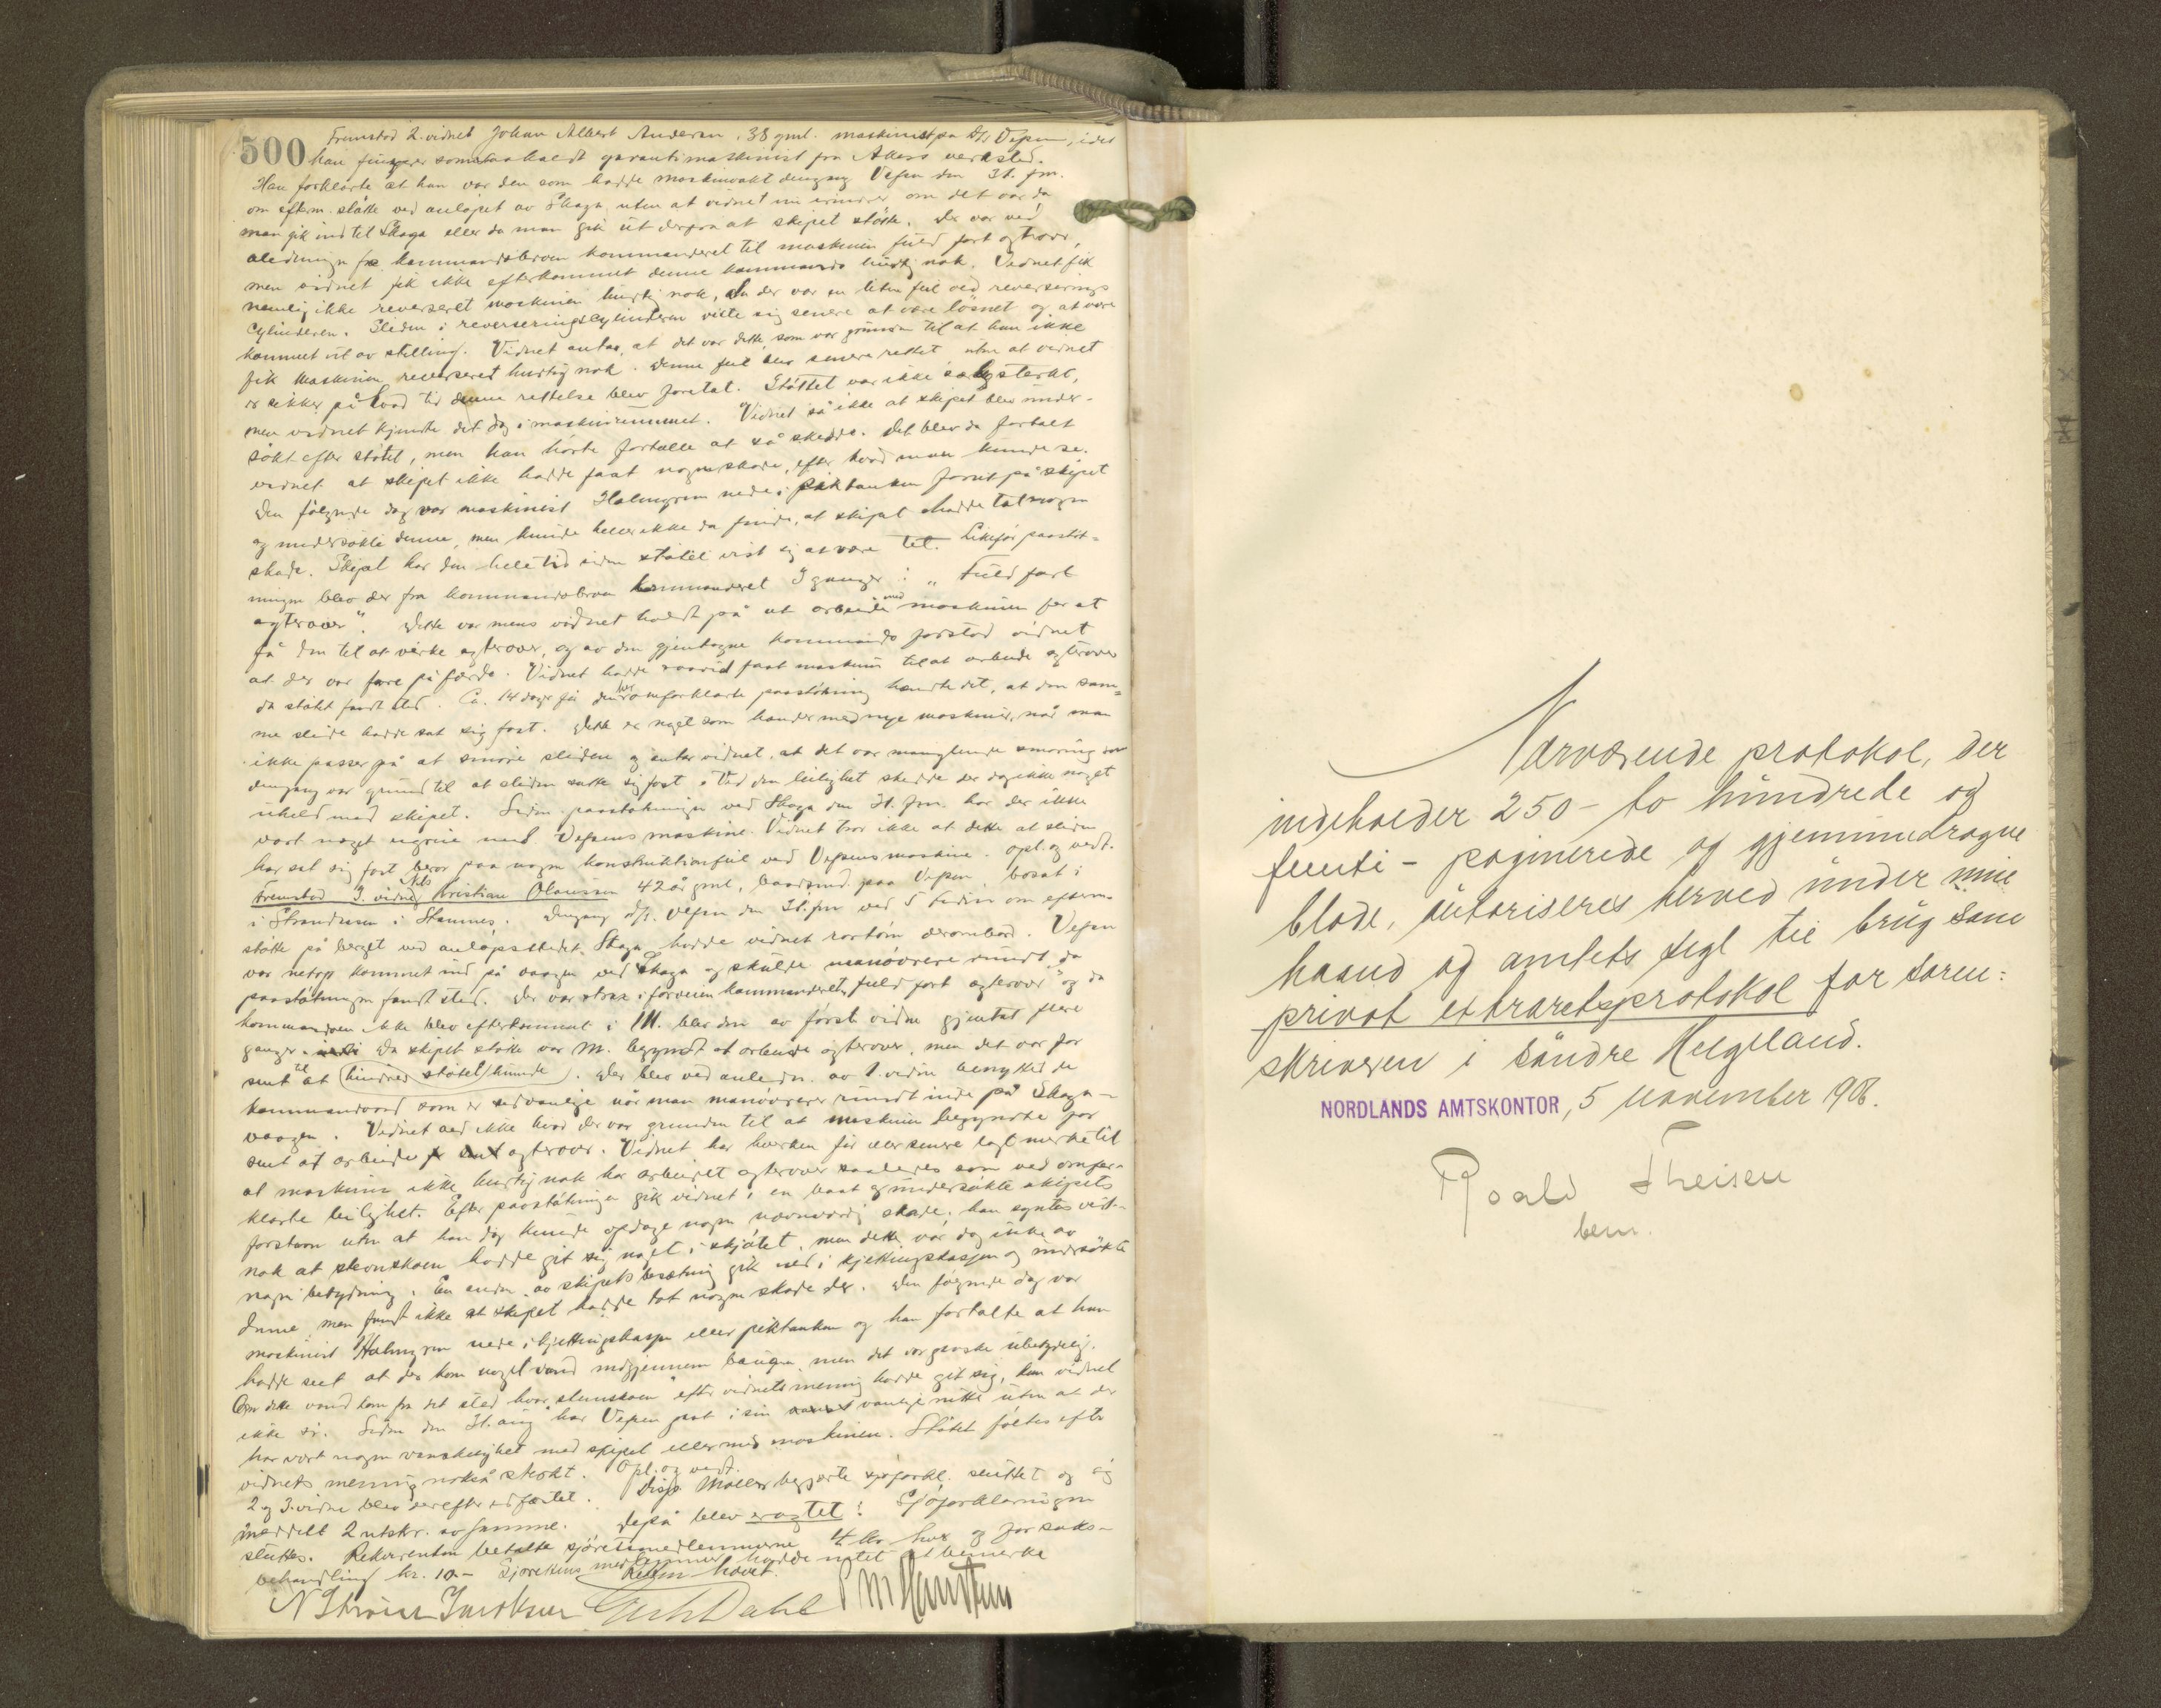 500 Fremstod 2. vidnet Johan Albert Andersen, 38 gml. maskinist paa D/s Vefsen, idet
han fungerer som saakaldt garantimaskinist fra Akers verksted.
Han forklarte at han var den som hadde maskinvakt dengang Vefsn den 31. fm.
om efterm. støtte ved anløpet av Skaga, uten at vidnet nu erindrer om det var da
man gik ind til Skaga eller da man gik ut derfra at skipet støtte. Der var ved
fra kommandobroen kommanderet til maskinen fuld fart agterover,
men vidnet fik ikke efterkommet denne kommando hurtig nok. Vidnet fik
nemlig ikke reverseret maskinen hurtig nok, da der var en liten feil ved reverserings
cylinderen. Sliden i reverseringscylinderen viste sig senere at være løsnet og at være
kommet ut av stilling. Vidnet antar, at det var dette, som var grunden til at han ikke
fik maskinen reverseret hurtig nok. Denne feil blev senere rettet uten at vidnet
er sikker på hvad tid denne rettelse blev foretat. Støttet var ikke særlig sterkt,
men vidnet kjendte det dog i maskinrummet. Vidnet så ikke at skipet blev under-
søkt efter støtet, men han hørte fortælle at så skedde. Det blev da fortalt
vidnet at skipet ikke hadde faat nogen skade, efter hvad man kunde se.
Den følgende dag var maskinist Holmgren nede i piktanken forut på skipet
og undersøkte denne, men kunde heller ikke da finde, at skipet hadde tat nogen
skade. Skipet har den hele tid siden støtet vist sig at være tet. Like før paastøt-
ningen blev der fra kommandobroen kommanderet 3 ganger: "Fuld fart
agterover". Dette var mens vidnet holdt på at arbeide med maskinen for at
få den til at virke agterover, og av den gjentagne kommando forstod vidnet
at der var fare på færde. Vidnet hadde faat maskinen til at arbeide agterover
da støtet fandt sted. Ca. 14 dage før den her omforklarte paastøtning hændte det, at den sam-
me slide hadde sat sig fast. Dette er noget som hænder med nye maskiner, når man
ikke passer på at smøre sliden og antar vidnet, at det var manglende smøring som
dengang var grund til at sliden satte sig fast. Ved den leilighet skedde der dog ikke noget
uheld med skipet. Siden paastøtningen ved Skaga den 31. fm. har der ikke
vært noget i veien med Vefsens maskine. Vidnet tror ikke at dette at sliden
har sat sig fast beror paa nogen konstruktionsfeil ved Vefsens maskine. Opl. og vedt.
Fremstod 3. vidnet Nils Kristian Olaussen 42 år gml., baadsmd. paa Vefsen, bosat i
i Strandnesen i Stamnes. Dengang d/s. Vefsn den 31. fm ved 5 tiden om efterm.
støtte på berget ved anløpsstedet Skaga hadde vidnet rortørn derombord. Vefsen
var netop kommet ind på vaagen ved Skaga og skulde manøvrere rundt, da
paastøtningen fandt sted. Der var strax i forveien kommanderet "fuld fart agterover" og da
kommandoen ikke blev efterkommet i M. blev den av første vidne gjentat flere
ganger. Da skipet støtte var M. begyndt at arbeide agterover, men det var for
sent til at (hindre støtet) kunde). Der blev ved anledn. av 1. vidne benyttet de
kommandoord som er sedvanlige når man manøvrerer rundt inde på Skaga-
vaagen. Vidnet ved ikke hvad der var grunden til at maskinen begyndte for
sent at arbeide agterover. Vidnet har hverken før eller senere lagt merke til
at maskinen ikke hurtig nok har arbeidet agterover saaledes som ved omfor-
klarte leilighet. Efter paastøtningen gik vidnet i en baat og undersøkte skipets
forstavn uten at han dog kunde opdage nogen nævneværdig skade; han syntes vist-
nok at stevnskoen hadde git sig noget i skjøtet, men dette var dog ikke av
nogen betydning. En anden av skipets besætning gik ned i kjettingkassen og undersøkte
denne, men fandt ikke at skipet hadde tat nogen skade der. Den følgende dag var
maskinist Holmgren nede i kjettingkassen eller piktanken og han fortalte at han
hadde set at der kom noget vand indgjennem baugen, men det var ganske ubetydelig.
Om dette vand kom fra det sted hvor stevnskoen efter vidnets mening hadde git sig, kan vidnet
ikke si. Siden den 31. aug. har Vefsen gaat i sin vanlige rute uten at der
har vært nogen vanskelighet med skipet eller med maskinen. Støtet føltes efter
vidnets mening nokså sterkt. Opl. og vedt.
2 og 3. vidne blev derefter edfæstet. Disp. Møller begjærte sjøforkl. sluttet og sig
meddelt 2 utskr. av samme. Derpå blev eragtet: Sjøforklaringen
sluttes. Rekvirenten betalte sjøretsmedlemmerne 4 kr. hver og for saks-
behandling kr. 10.- Sjørettens medlemmer hadde intet at bemerke
Retten hævet.
N Strøm Jacobsen Dahl
Nærværende protokol, der
indeholder 250 - to hundrede og
femti - paginerede og gjennemdragne
blade, autoriseres herved under min
haand og amtets segl til brug som
privat extraretsprotokol for soren:
skriveren i søndre Helgeland.
NORDLANDS AMTSKONTOR, 5 november 1906.
Roald Theisen
bem.